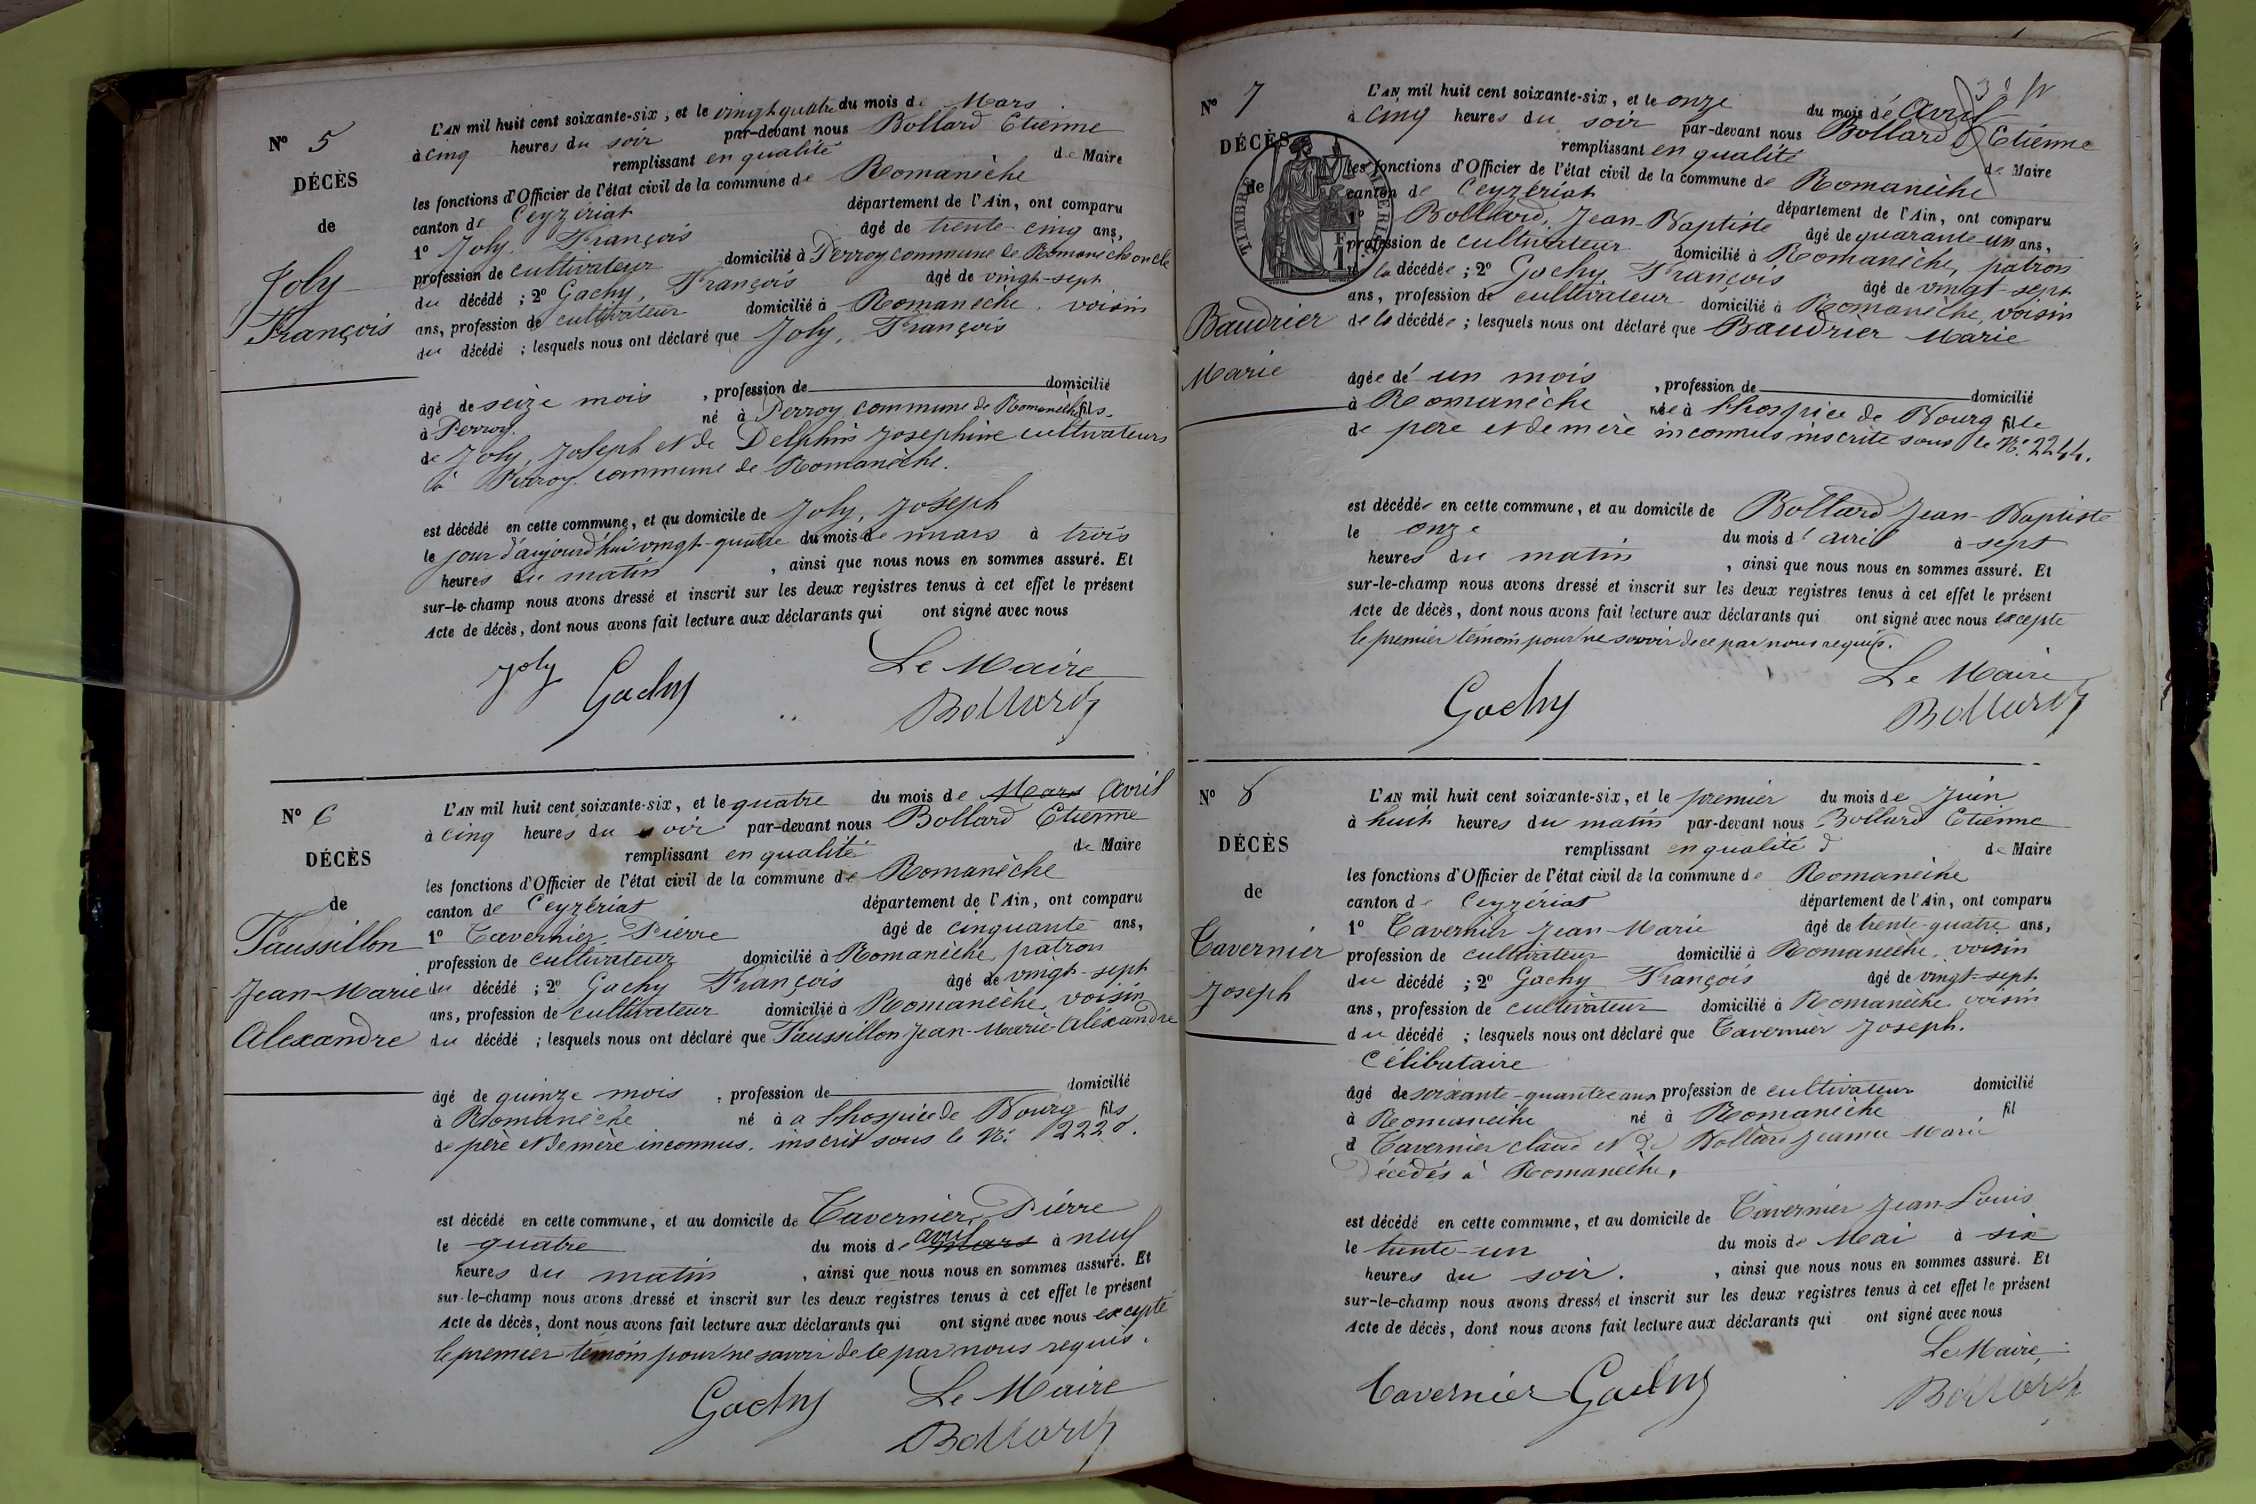 N° 5
DÉCÈS
de
Joly
François
L'AN mil huit cent soixante-six, et le vingt quatre du mois de Mars
à cinq heures du soir par-devant nous Bollard Etienne
remplissant en qualité de Maire
les fonctions d'Officier de l'état civil de la commune de Romanèche
canton de Ceyzériat département de l'Ain, ont comparu
1° Joly François âgé de trente-cinq ans,
profession de cultivateur domicilié à Perroy commune de Romanèche oncle
du décédé ; 2° Gachy, François âgé de vingt-sept
ans, profession de cultivateur domicilié à Romanèche, voisin
du décédé ; lesquels nous ont déclaré que Joly, François
âgé de seize mois, profession de domicilié
à Perroy. né à Perroy commune de Romanèche fils
de Joly, Joseph et de Delphin Josephine cultivateurs
à Perroy commune de Romanèche.
est décédé en cette commune, et au domicile de Joly, Joseph
le jour d'aujourd'hui vingt-quatre du mois de mars à trois
heures du matin, ainsi que nous nous en sommes assuré. Et
sur-le-champ nous avons dressé et inscrit sur les deux registres tenus à cet effet le présent
Acte de décès, dont nous avons fait lecture aux déclarants qui ont signé avec nous
Joly Gachy Le Maire
Bollard
N° 6
DÉCÈS
de
Faussillon
Jean-Marie
Alexandre
L'AN mil huit cent soixante-six, et le quatre du mois de Mars Avril
à cinq heures du soir par-devant nous Bollard Etienne
remplissant en qualité de Maire
les fonctions d'Officier de l'état civil de la commune de Romanèche
canton de Ceyzériat département de l'Ain, ont comparu
1° Tavernier, Pierre âgé de cinquante ans,
profession de cultivateur domicilié à Romanèche, patron
du décédé ; 2° Gachy François âgé de vingt-sept
ans, profession de cultivateur domicilié à Romanèche, voisin
du décédé ; lesquels nous ont déclaré que Faussillon Jean-Marie Aléxandre
âgé de quinze mois, profession de domicilié
à Romanèche né à a l'hospice de Bourg fils
de père et de mère inconnus. inscrit sous le N°: 1222
est décédé en cette commune, et au domicile de Tavernier, Pierre
le quatre du mois de mars avril à neuf
heures du matin, ainsi que nous nous en sommes assuré. Et
sur-le-champ nous avons dressé et inscrit sur les deux registres tenus à cet effet le présent
Acte de décès, dont nous avons fait lecture aux déclarants qui ont signé avec nous excepté
le premier témoin pour ne savoir de ce par nous requis.
Gachy Le Maire
Bollard
N° 7
DÉCÈS
de
Baudrier
Marie
L'AN mil huit cent soixante-six, et le onze du mois de Avril
à cinq heures du soir par-devant nous Bollard Etienne
remplissant en qualité de Maire
les fonctions d'Officier de l'état civil de la commune de Romanèche
canton de Ceyzériat département de l'Ain, ont comparu
1° Bollard, Jean-Baptiste âgé de quarante-un ans,
profession de cultivateur domicilié à Romanèche, patron
de la décédée ; 2° Gachy François âgé de vingt-sept
ans, profession de cultivateur domicilié à Romanèche, voisin
de la décédée ; lesquels nous ont déclaré que Baudrier Marie
âgée de un mois, profession de domicilié
à Romanèche née à l'hospice de Bourg fille
de père et de mère inconnus inscrite sous le N°: 2244.
est décédée en cette commune, et au domicile de Bollard Jean-Baptiste
le onze du mois d'avril à sept
heures du matin, ainsi que nous nous en sommes assuré. Et
sur-le-champ nous avons dressé et inscrit sur les deux registres tenus à cet effet le présent
Acte de décès, dont nous avons fait lecture aux déclarants qui ont signé avec nous excepté
le premier témoin pour ne savoir de ce par nous requis.
Gachy Le Maire
Bollard
N° 8
DÉCÈS
de
Tavernier
Joseph
L'AN mil huit cent soixante-six, et le premier du mois de Juin
à huit heures du matin par-devant nous Bollard Etienne
remplissant en qualité de Maire
les fonctions d'Officier de l'état civil de la commune de Romanèche
canton de Ceyzériat département de l'Ain, ont comparu
1° Tavernier Jean-Marie âgé de trente-quatre ans,
profession de cultivateur domicilié à Romanèche, voisin
du décédé ; 2° Gachy François âgé de vingt-sept
ans, profession de cultivateur domicilié à Romanèche voisin
du décédé ; lesquels nous ont déclaré que Tavernier Joseph.
Célibataire
âgé de soixante- ans profession de cultivateur domicilié
à Romanèche né à Romanèche, fil
d Tavernier Claud et de Bollard Jeanne Marie
Décédés à Romanèche,
est décédé en cette commune, et au domicile de Tavernier Jean-Louis
le trente-un du mois de Mai à six
heures du soir., ainsi que nous nous en sommes assuré. Et
sur-le-champ nous avons dressé et inscrit sur les deux registres tenus à cet effet le présent
Acte de décès, dont nous avons fait lecture aux déclarants qui ont signé avec nous
Le Maire
Tavernier Gachy Bollard